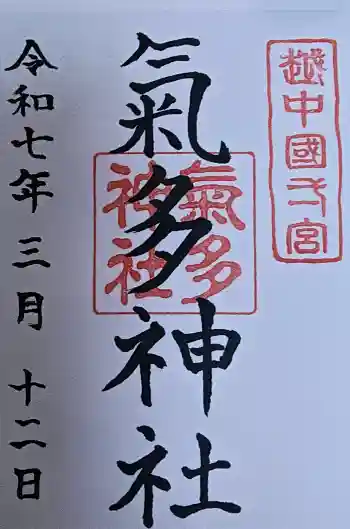 越中國一宮
氣多神社
氣多
神社
令和七年三月十二日